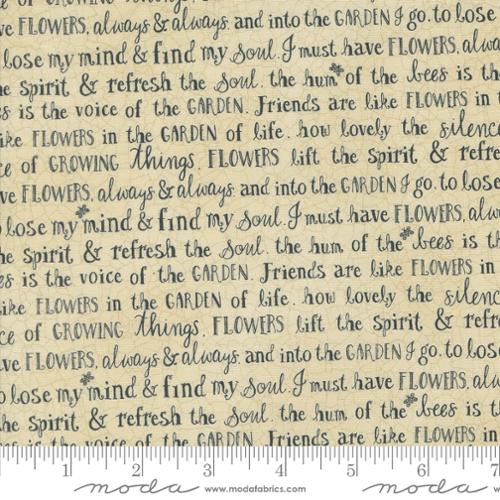 of GROWING things.
ve FLOWERS, always & always. and into the GARDEN I go. to lose
lose my mind & find my soul. I must have FLOWERS, alwa
he Spirit & refresh the Soul. the hum of the bees is th
s is the voice of the GARDEN. Friends are like FLOWERS in t
ike FLOWERS in the GARDEN of life. how lovely the silence
ce of GROWING things. FLOWERS lift the Spirit & refre
ve FLOWERS, always & always. and into the GARDEN I go. to lose
o lose my mind & find my soul. I must have FLOWERS, alw
he Spirit & refresh the Soul. the hum of the bees is th
es is the voice of the GARDEN. Friends are like FLOWERS in
like FLOWERS in the GARDEN of life. how lovely the silenc
ce of GROWING things. FLOWERS lift the Spirit & refr
ve FLOWERS, always & always. and into the GARDEN I go. to los
o lose my mind & find my soul. I must have FLOWERS, alw
the Spirit & refresh the Soul. the hum of the bees is t
is the voice of the GARDEN. Friends are like FLOWERS in
1 2 3 4 5 6 7
moda www.modafabrics.com moda